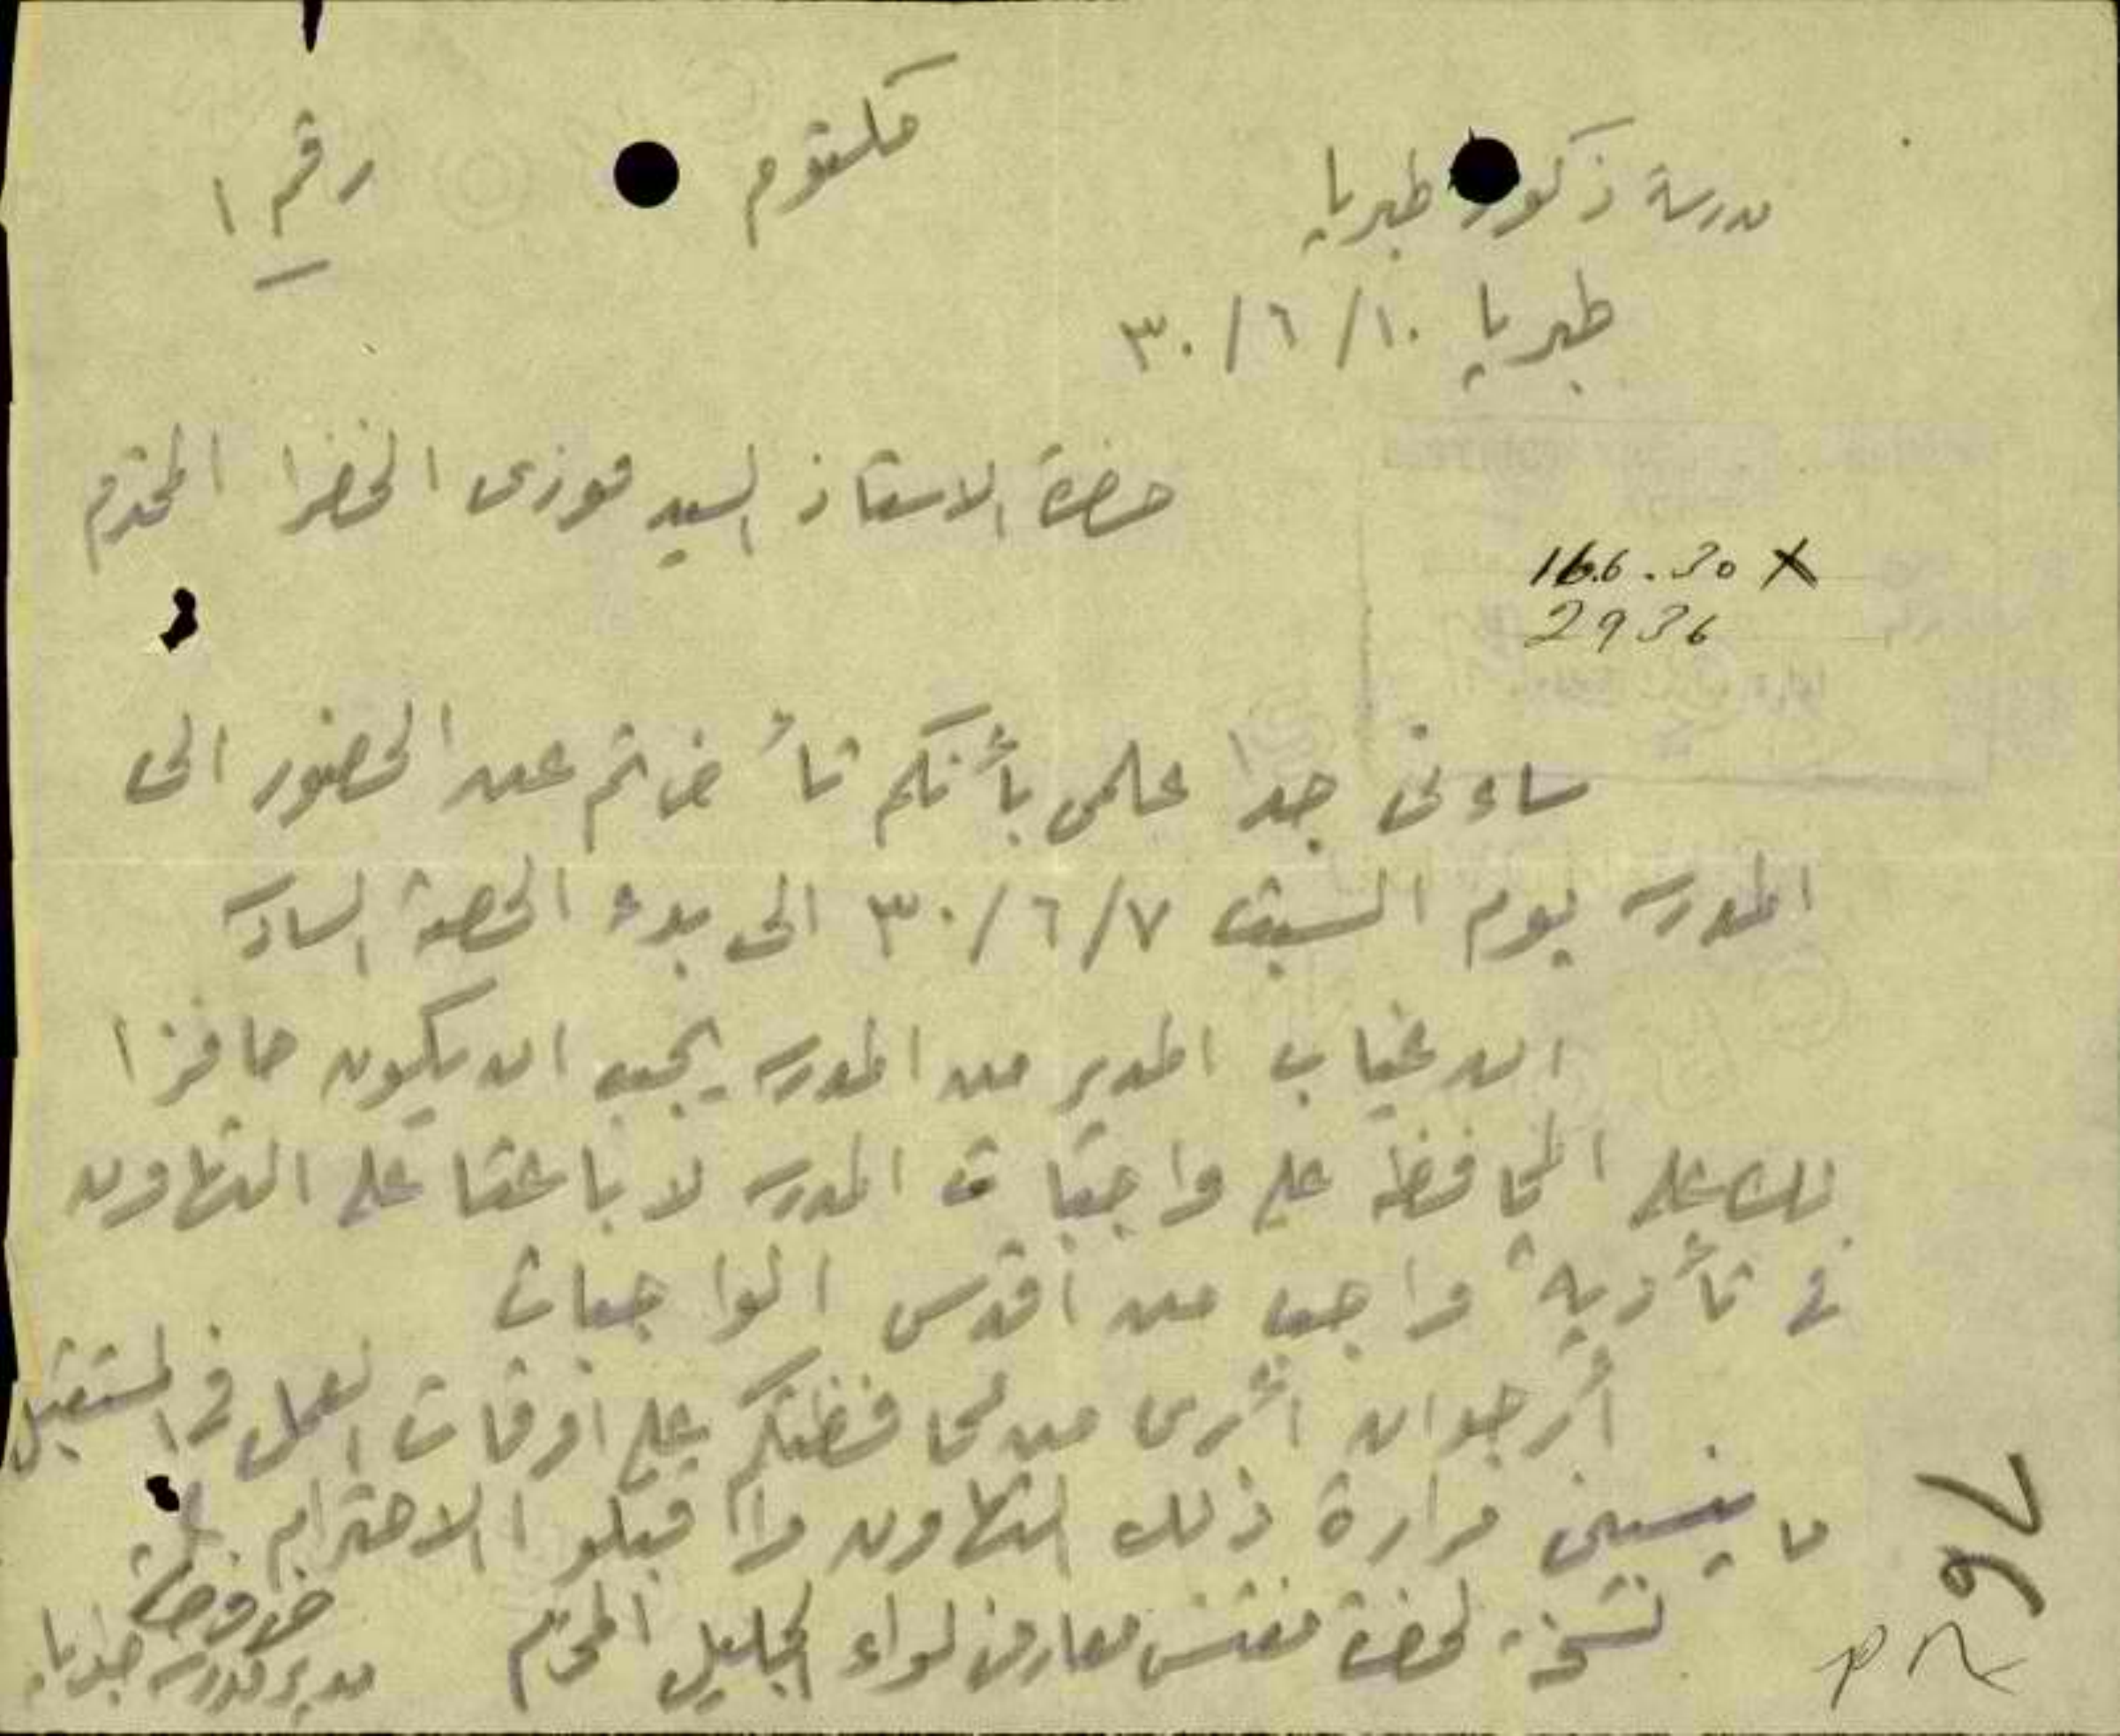 مدرسة ذكور طبريا
مكتوم
رقم ١
طبريا ١٠/٦/٣٠
حضرة الاستاذ السيد فوزى الخضرا المحترم
16.6.30
2936
ساءنى جدا علمى بأنكم تأخرتم عن الحضور الى
المدرسة يوم السبت ٧/٦/٣٠ الى بدء الحصة السادسة
ان غياب المدير من المدرسة يجب ان يكون حافزا
لك على المحافظة على واجبات المدرسة لا باعثا على التهاون
في تأدية واجب من أقدس الواجبات
أرجو ان أرى من محافظتكم على اوقات العمل في المستقبل
ما ينسينى مرارة ذلك التهاون واقبلوا الاحترام
مدير مدرسة طبريا
نسخة لحضرة مفتش معارف لواء الجليل المحترم
76